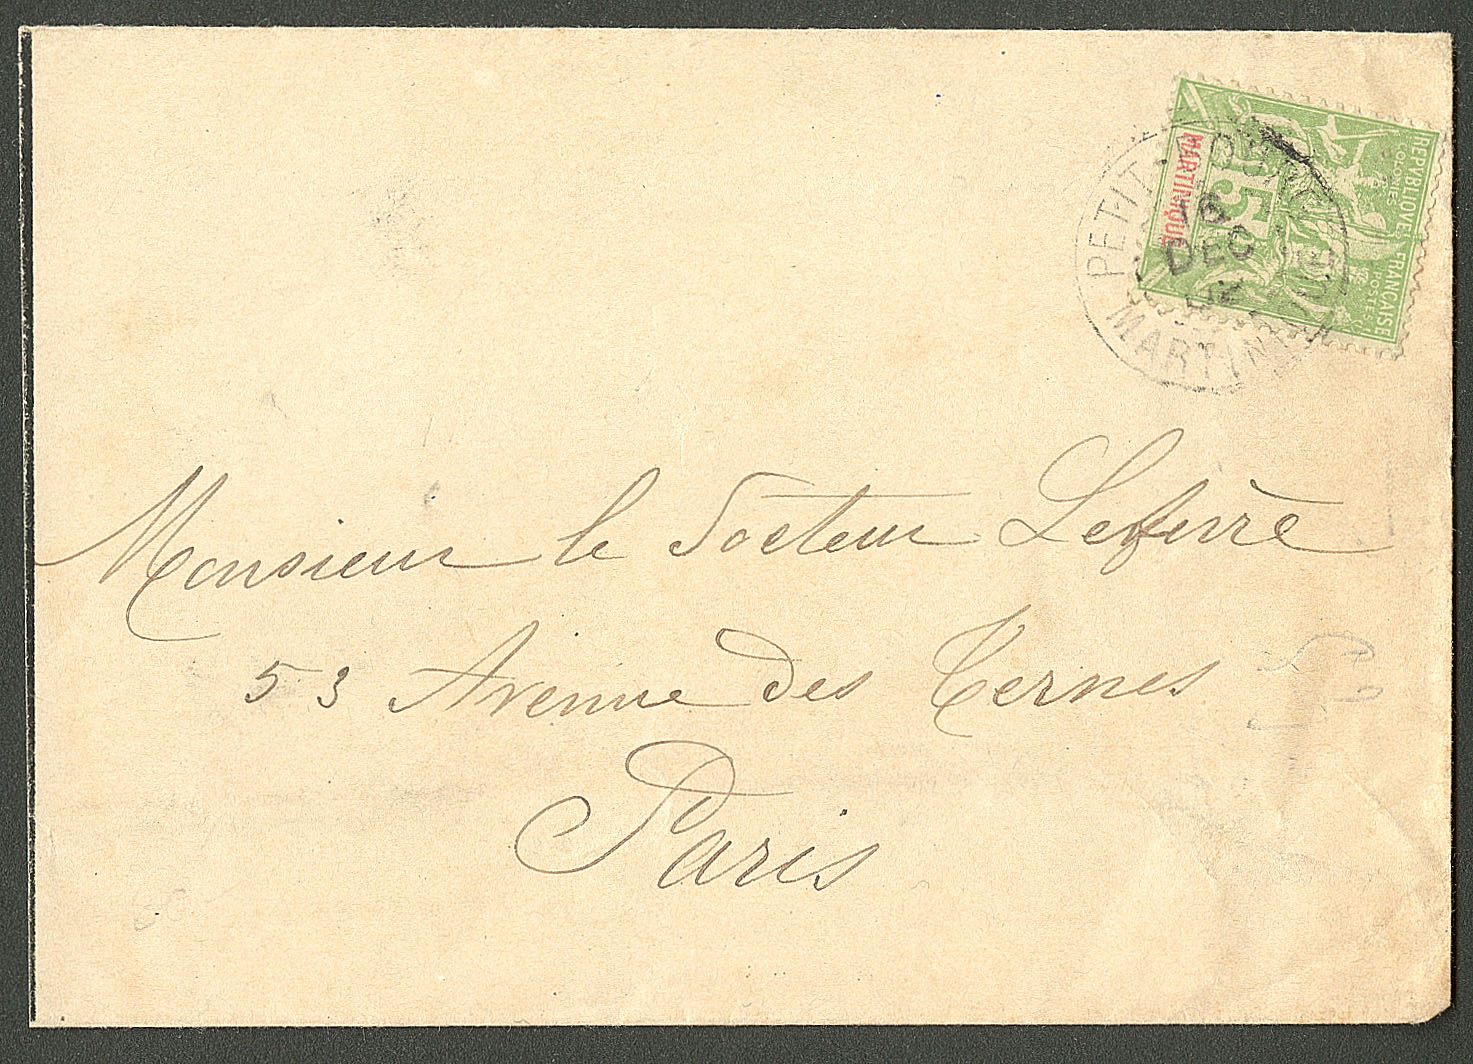 REPVBLIQVE FRANÇAISE
COLONIES POSTES
MARTINIQUE
5
PETIT-BOURG
16
DEC
02
MARTINIQUE
Monsieur le Docteur Lefèvre
53 Avenue des Ternes
Paris